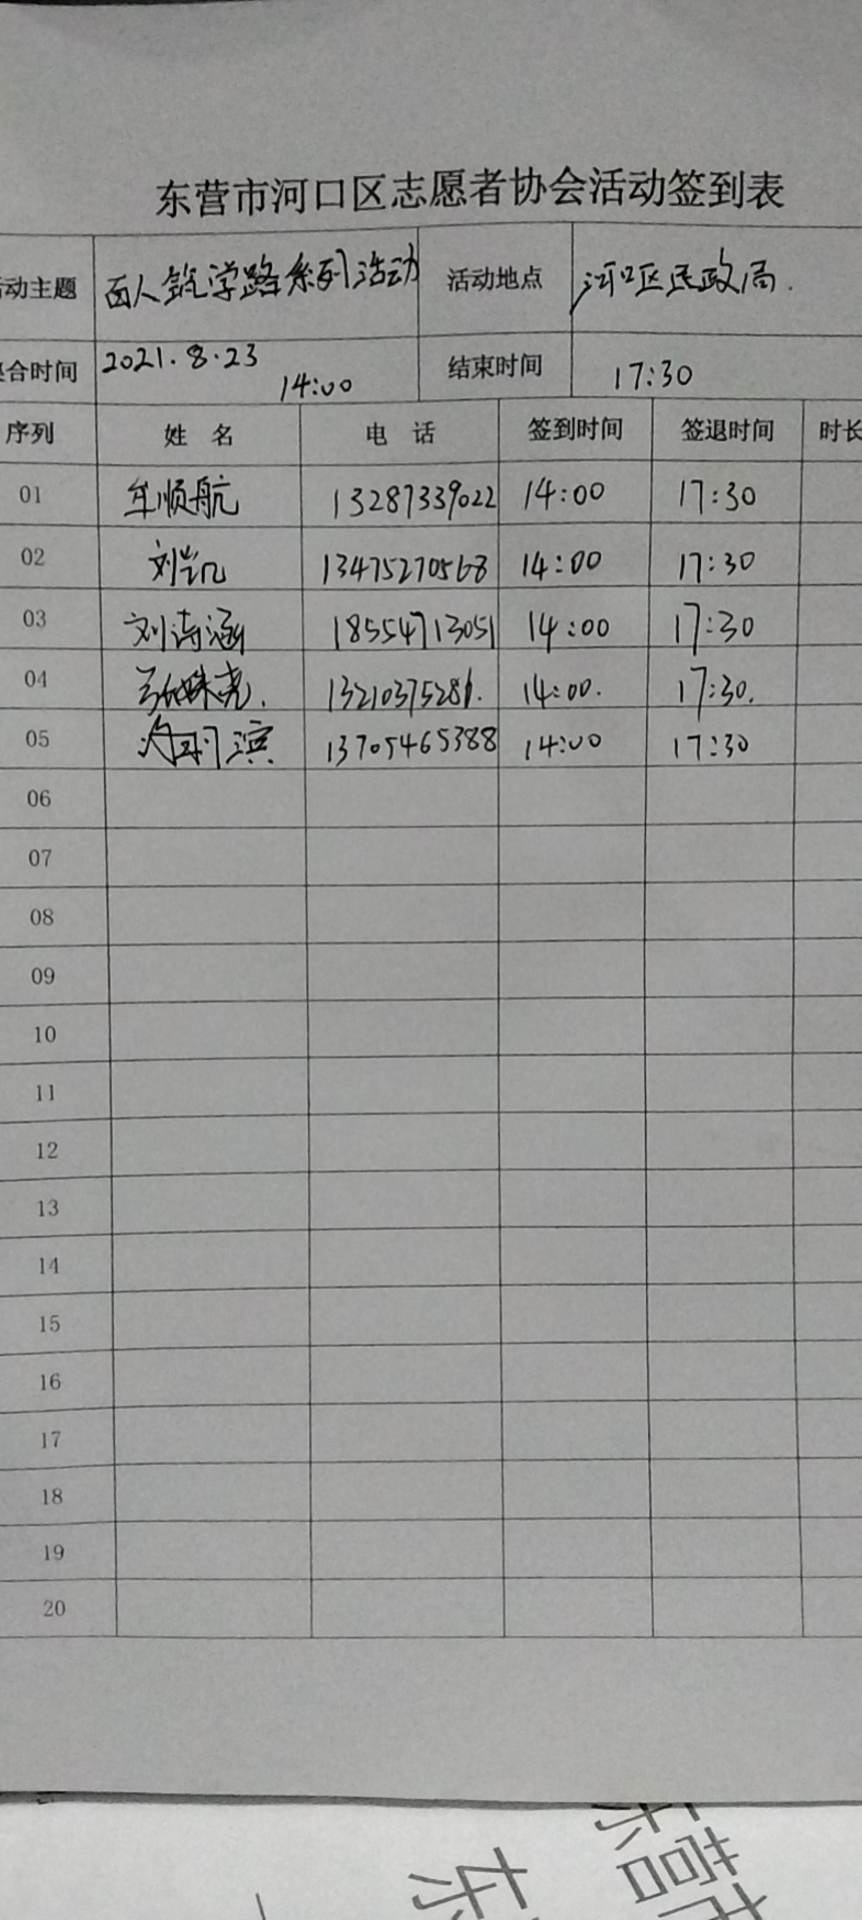 东营市河口区志愿者协会活动签到表
动主题 百人筑学路系列活动 活动地点 河口区民政局.
合时间 2021.8.23 14:00 结束时间 17:30
序列 姓 名 电 话 签到时间 签退时间 时长
01 牟顺航 13287339022 14:00 17:30
02 刘凯 13475270568 14:00 17:30
03 刘诗涵 18554713051 14:00 17:30
04 13210375281. 14:00. 17:30.
05 滨 13705465388 14:00 17:30
06
07
08
09
10
11
12
13
14
15
16
17
18
19
20
东营